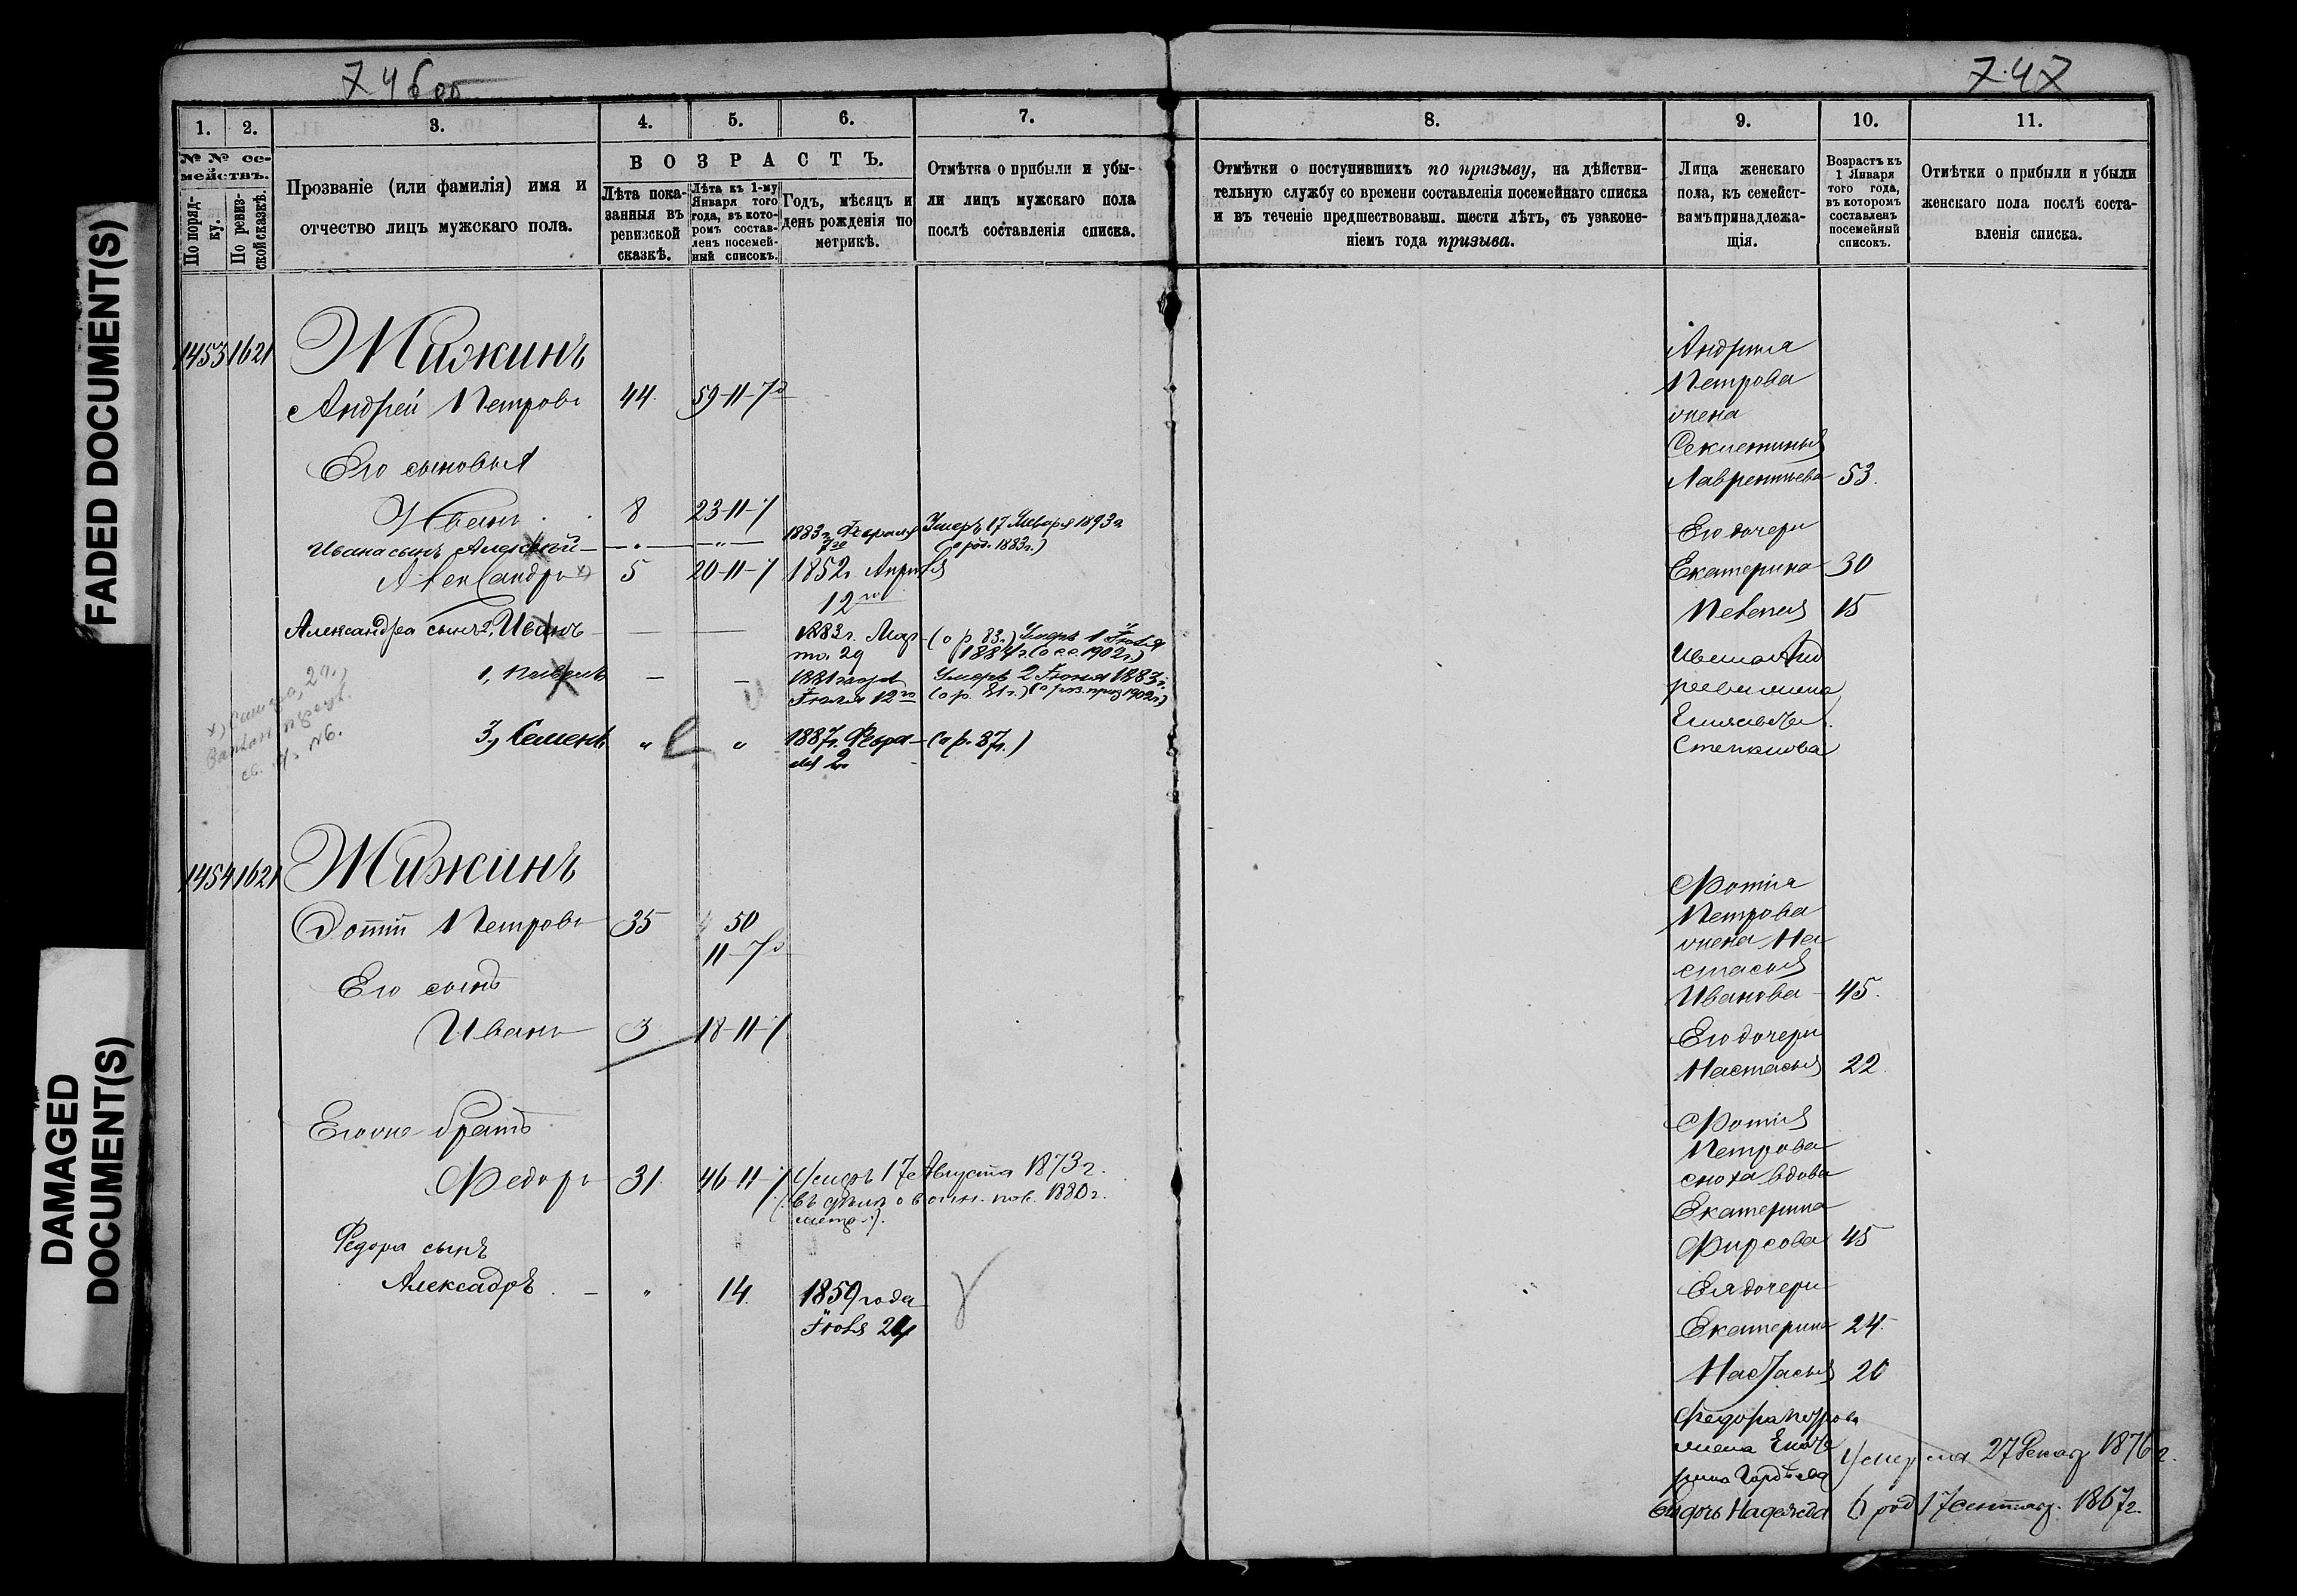 746 об
747
FADED DOCUMENT(S)
DAMAGED
DOCUMENT(S)
1.
2.
3.
4.
5.
6.
7.
8.
9.
10.
11.
№ № се-
мействъ.
По поряд-
ку.
По ревиз-
ской сказкѣ.
Прозваніе (или фамилія) имя и
отчество лицъ мужскаго пола.
ВОЗРАСТЪ.
Лѣта пока-
занныя въ
ревизской
сказкѣ.
Лѣта къ 1-му
Января того
года, въ кото-
ромъ состав-
ленъ посемей-
ный списокъ.
Годъ, мѣсяцъ и
день рожденія по
метрикѣ.
Отмѣтка о прибыли и убы-
ли лицъ мужскаго пола
послѣ составленія списка.
Отмѣтки о поступившихъ по призыву, на дѣйстви-
тельную службу со времени составленія посемейнаго списка
и въ теченіе предшествовавш. шести лѣтъ, съ узаконе-
ніемъ года призыва.
Лица женскаго
пола, къ семейст-
вамъ принадлежа-
щія.
Возрастъ къ
1 Января
того года,
въ которомъ
составленъ
посемейный
списокъ.
Отмѣтки о прибыли и убыли
женскаго пола послѣ соста-
вленія списка.
1453 1621 Жижинъ
Андрей Петровъ 44 59-11-7
Его сыновья
Иванъ 8 23-11-7
Ивана сынъ Алексѣй 1883 г. Февраля Умеръ 17 Января 1893 г.
7го (о род. 1883 г.)
Александръ х) 5 20-11-7 1852 г. Апрѣля
12го
Александра сынъ 2, Иванъ 1883 г. Мар- (о р. 83 г.) Умеръ 1 Іюля
та 29 1884 г.
1, 1881 года Умеръ 2 Іюня 1883 г.
Іюля 12го (о р. 81 г.)
3, Семенъ " " 1887 г. Февра- (о р. 87 г.)
ля 2
Андрея
Петрова
жена
Лаврентьева 53.
Его дочери
Екатерина 30
Пелагея 15
Ивана Анд
реева жена
Елизавета
Степанова
1454 1621 Жижинъ
Фотій Петровъ 35 50
11-7
Его сынъ
Иванъ 3 18-11-7
Его же братъ
Федоръ 31 46-11-7 Умеръ 17 Августа 1873 г.
(въ дѣлѣ о воин. пов. 1880 г.
метр.).
Федора сынъ
Алексадръ " 14. 1859 года
Іюля 24
Фотія
Петрова
жена На
стасья
Иванова 45.
Его дочери
Настасья 22
Фотія
Петрова
сноха вдова
Екатерина
Фирсова 45
Ея дочери
Екатерина 24.
Настасья 20
Федора Петрова
жена Екате
рина Гордѣева Умерла 27 Декаб. 1876 г.
Ея дочь Надежда 6 род. 17 сентяб. 1867 г.